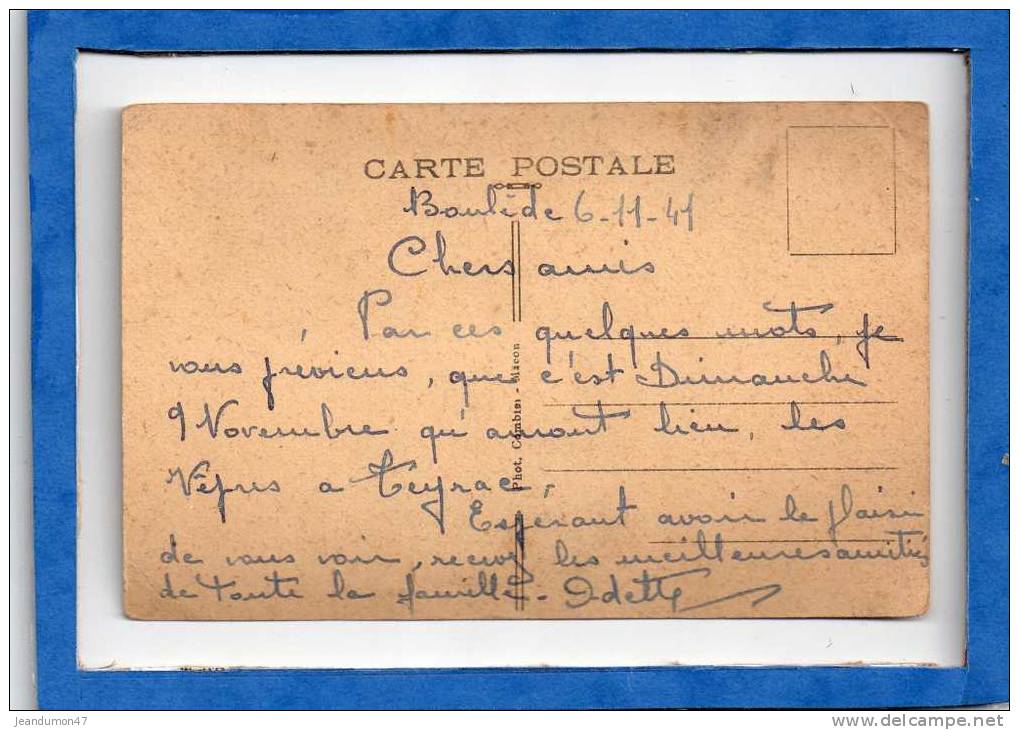 CARTE POSTALE
Boulède 6-11-41
Chers amis
Par ces quelques mots, je
vous préviens, que c'est Dimanche
9 Novembre qu'auront lieu, les
Vêpres a Teyrac,
Espérant avoir le plaisir
de vous voir, recevez les meilleures amitiés
de toute la famille - Odette
Phot. Combier - Macon
jeandumon47
www.delcampe.net